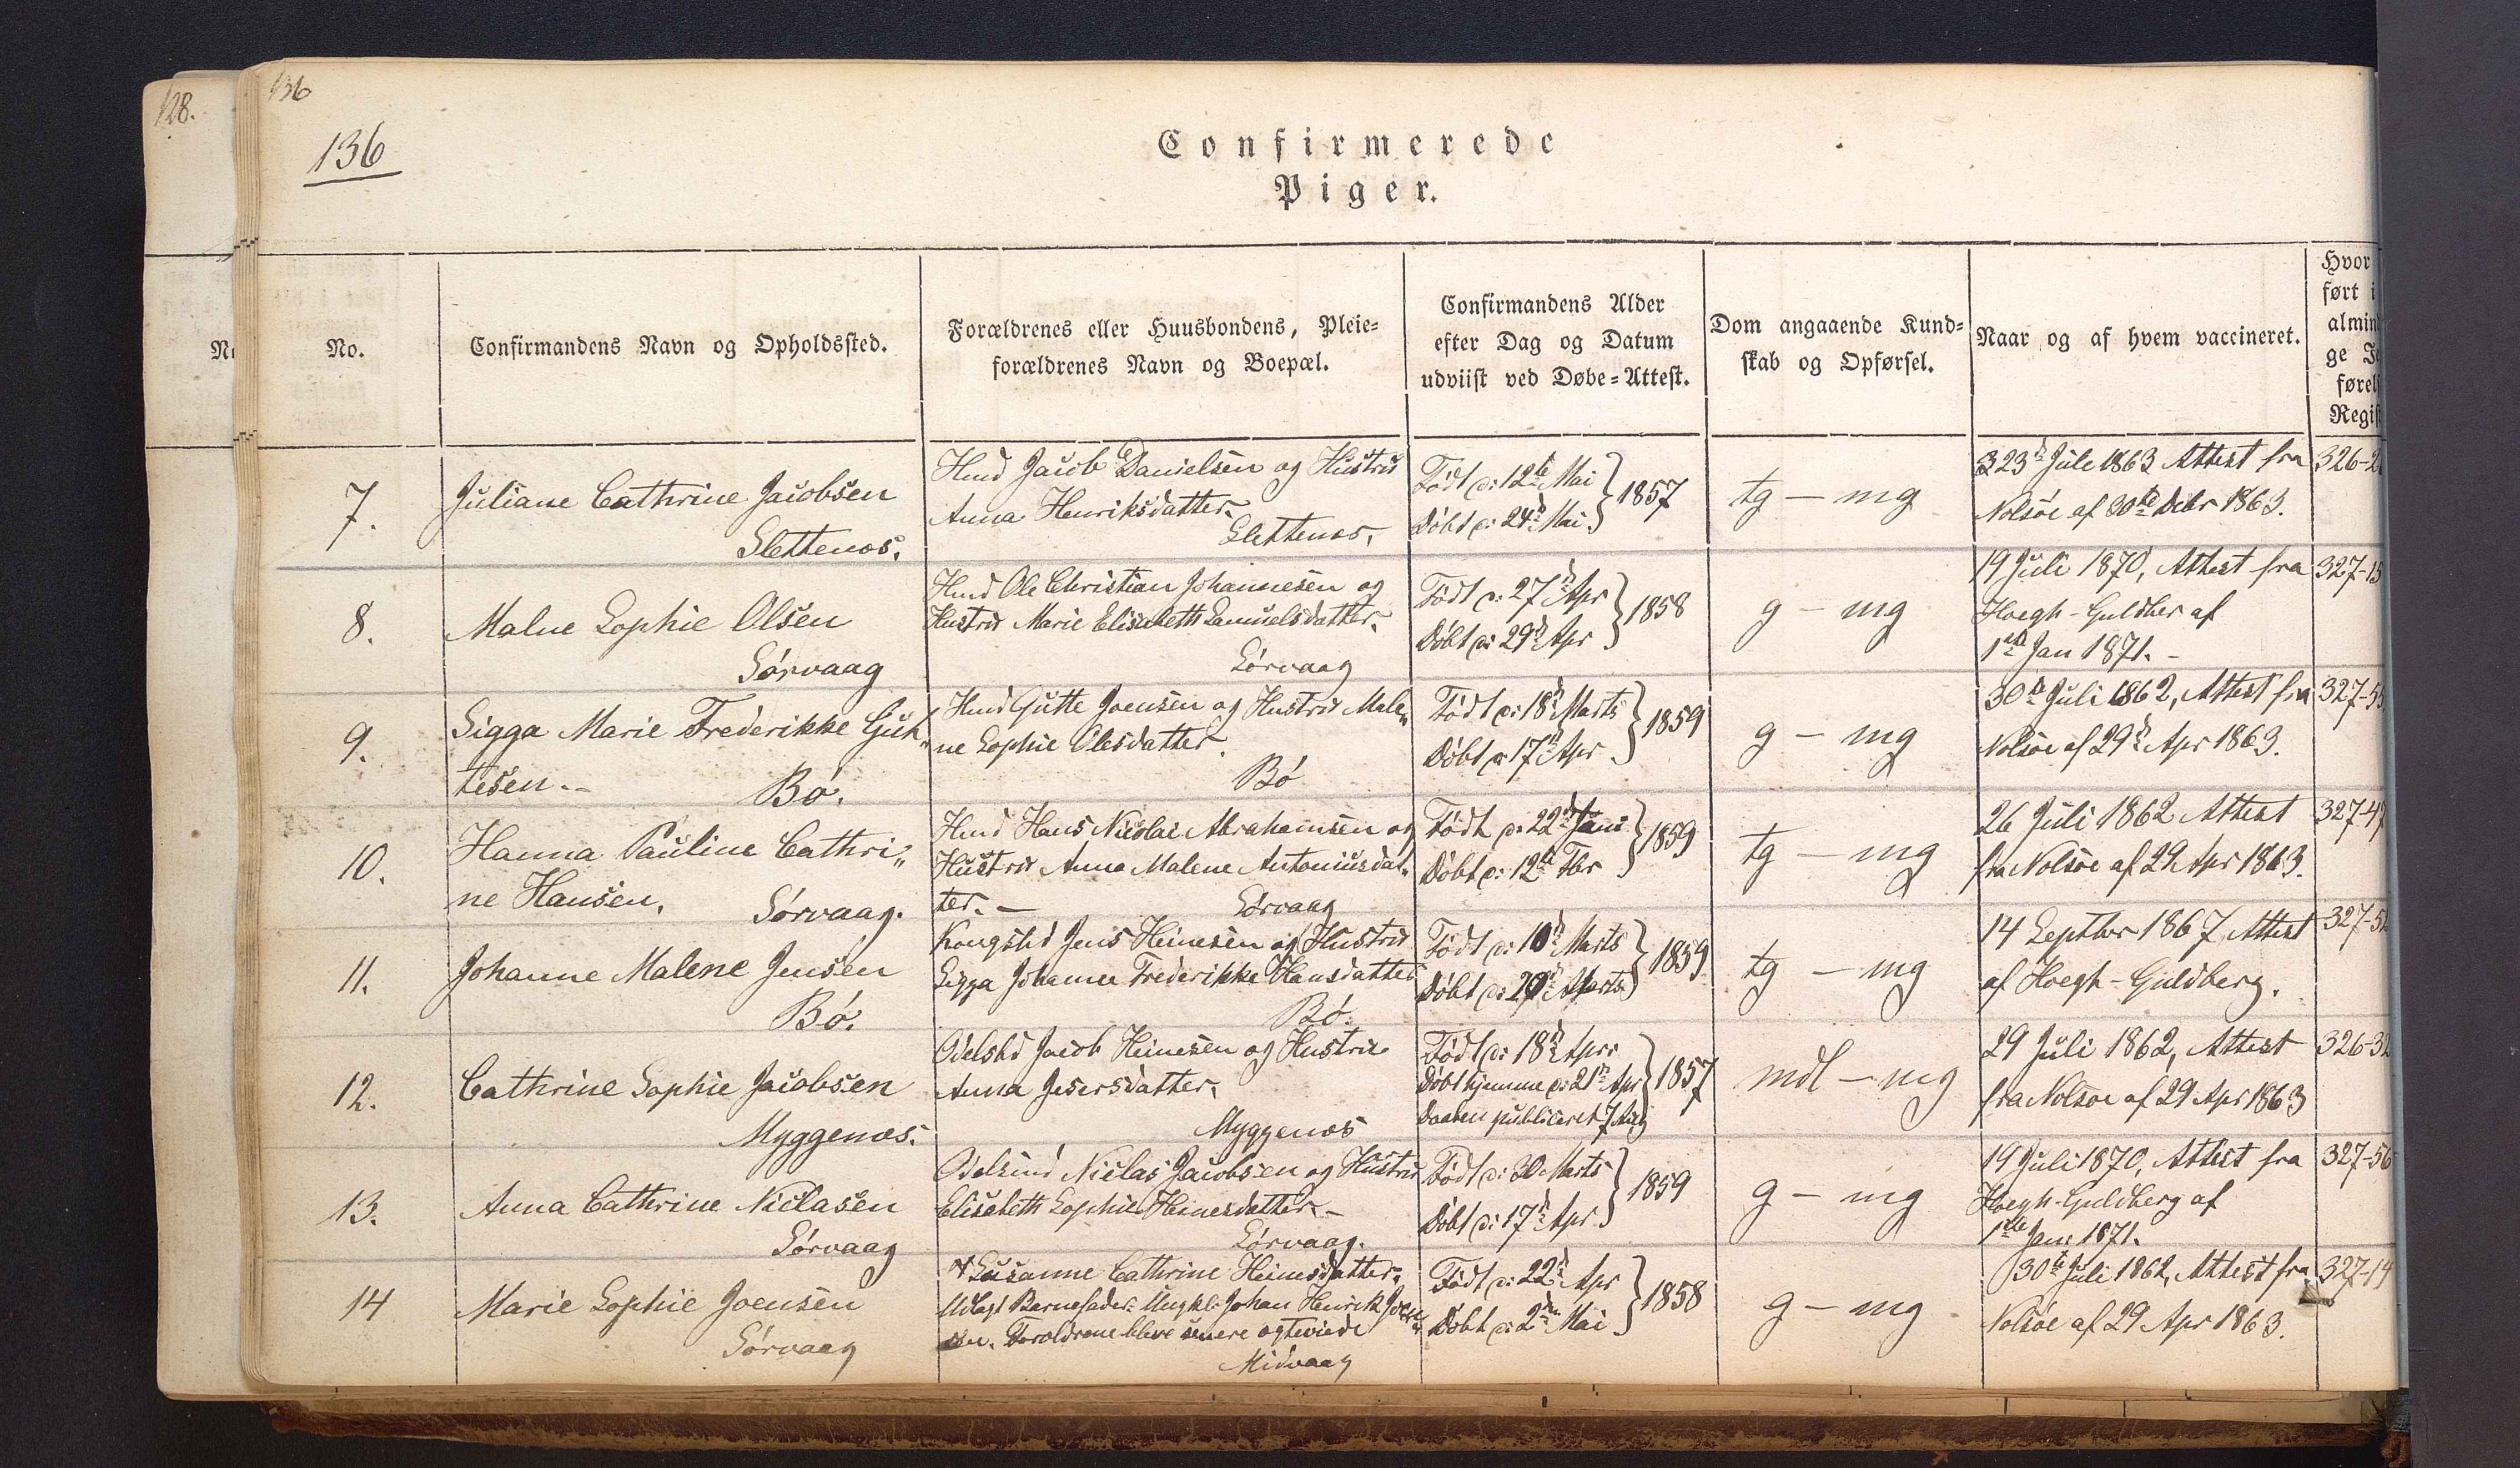 128.
136
136
Confirmerede
Piger.
No.
Confirmandens Navn og Opholdssted.
Forældrenes eller Huusbondens, Pleie=
forældrenes Navn og Boepæl.
Confirmandens Alder
efter Dag og Datum
udviist ved Døbe=Attest.
Dom angaaende Kund=
skab og Opførsel.
Naar og af hvem vaccineret.
Hvor
ført i
almin
ge
førel
Regist
7.
Juliane Cathrine Jacobsen
Slettenæs.
Hmd Jacob Danielsen og Hustru
Anna Henriksdatter.
Slettenæs.
Født d: 12te Mai
Døbt d: 24d Mai } 1857
tg – mg
23d Jule 1863 Attest fra
Nolsöe af 30te Debr 1863.
326-2
8.
Malne Sophie Olsen
Sörvaag
Hmd Ole Christian Johannesen og
Hustru Marie Elisabeth Samuelsdatter.
Sörvaag
Født d: 27d Apr
Døbt d: 29d Apr } 1858
g – mg
19 Juli 1870, Attest fra
Hoegh-Guldber af
1ste Jan 1871. –
327-15
9.
Sigga Marie Frederikke Gut„
tesen. – Bö.
Hmd Gutte Joensen og Hustru Male„
ne Sophie Olesdatter.
Bö
Født d: 18d Marts
Døbt d: 17d Apr } 1859
g – mg
30te Juli 1862, Attest fra
Nolsöe af 29d Apr 1863.
327-55
10.
Hanna Pauline Cathri„
ne Hansen. Sörvaag.
Hmd Hans Nicolai Abrahamsen og
Hustru Anna Malene Antoniusdat„
ter. – Sörvaag
Födt d: 22d Jani
Døbt d: 12te Fbr } 1859
tg – mg
26 Juli 1862 Attest
fra Nolsöe af 29 Apr 1863.
327-47
11.
Johanne Malene Jensen
Bö.
Kongsbd Jens Heinesen og Hustru
Sigga Johanne Frederikke Hansdatter
Bö.
Født d: 10d Marts
Døbt d: 20d Marts } 1859
tg – mg
14 Septbr 1867, Attest
af Hoegh-Guldberg.
327-5
12.
Cathrine Sophie Jacobsen
Myggenæs.
Odelsbd Jacob Heinesen og Hustru
Anna Jesersdatter.
Myggenæs
Født d: 18d Apri
Døbt hjemme d: 21d Apr } 1857
Daaben publiceret 7 Aug
mdl – mg
29 Juli 1862, Attest
fra Nolsöe af 29 Apr 1863
326-32
13.
Anna Cathrine Niclasen
Sörvaag
Niclas Jacobsen og Hustru
Elisabeth Sophie Heinesdatter. –
Sörvaag.
Født d: 30 Marts
Døbt d: 17d Apr } 1859
g – mg
19 Juli 1870, Attest fra
Hoegh-Guldberg af
1ste Jan: 1871.
327-56
14
Marie Sophie Joensen
Sörvaag
Susanne Cathrine Heinesdatter.
Udlagt Barnefader: Ungkl: Johan Henrik Joen„
sen. Forældrene bleve senere ægteviede
Midvaag
Født d: 22d Apr
Døbt d: 2den Mai } 1858
g – mg
30te Juli 1862, Attest fra
Nolsöe af 29 Apr 1863.
327-14